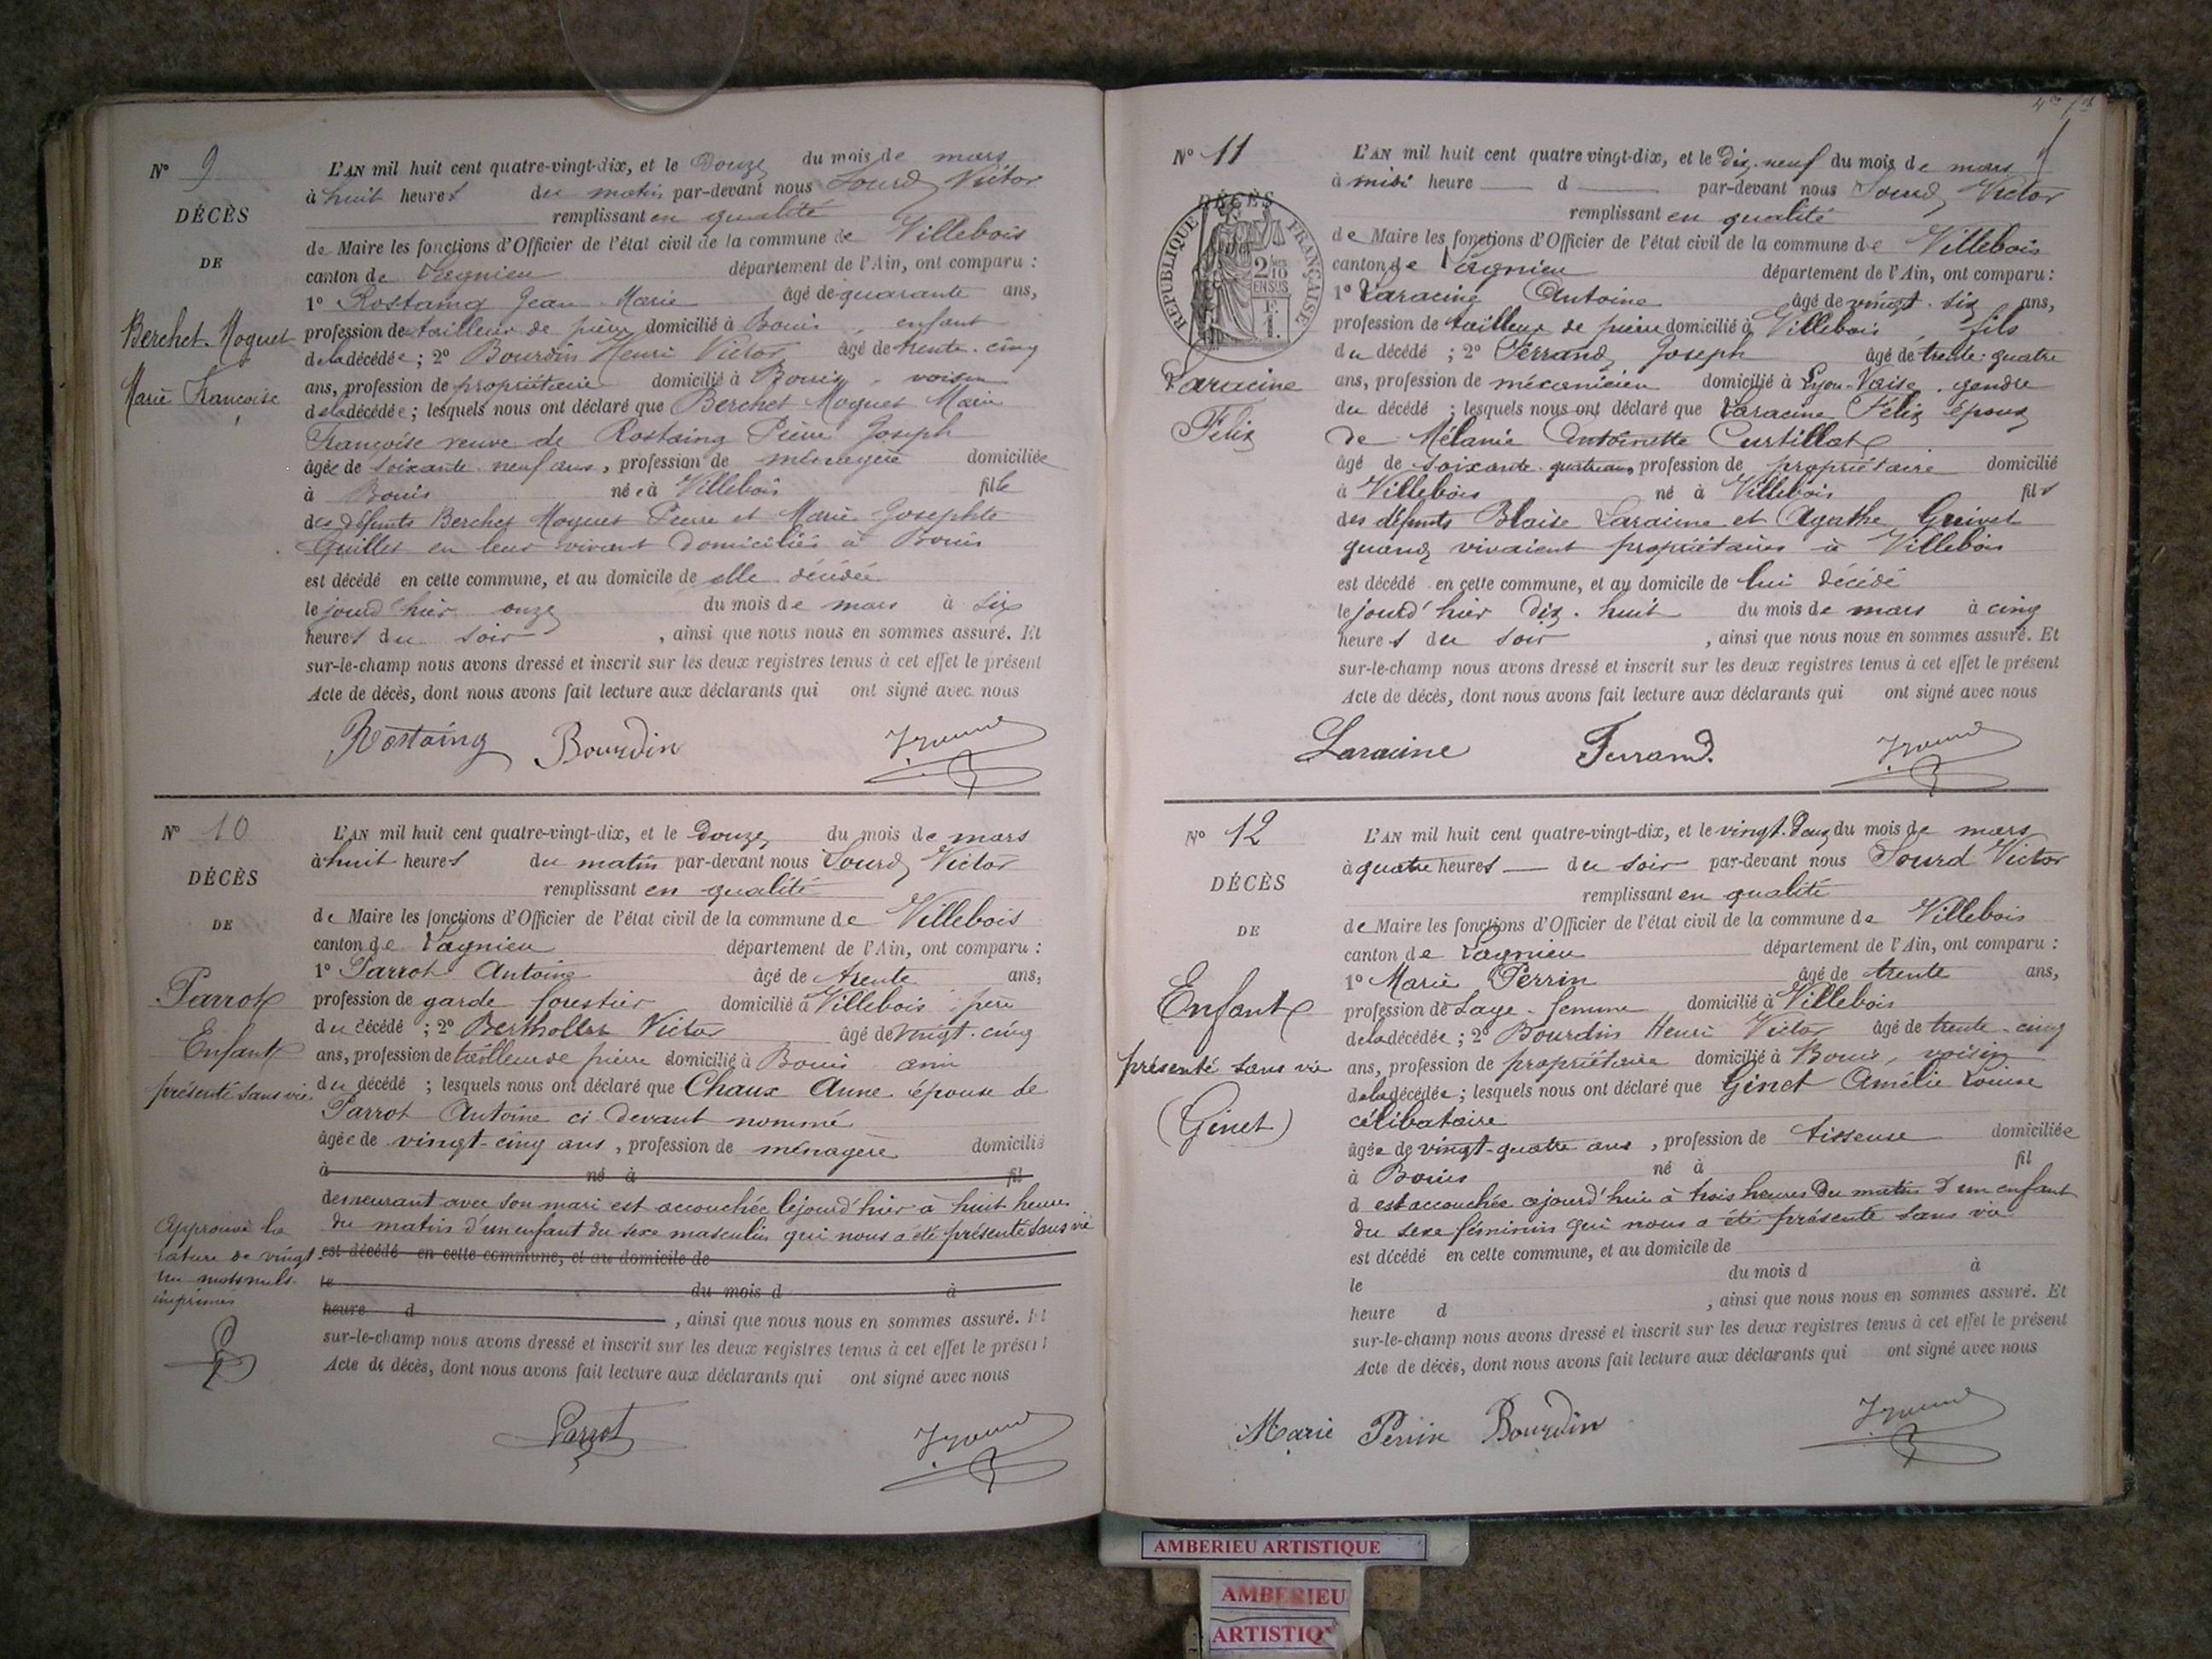 N° 9
DÉCÈS
DE
Berchet-Moguet
Marie Françoise
L'AN mil huit cent quatre-vingt-dix, et le Douze du mois de mars
à huit heures du matin par-devant nous Sourd Victor
remplissant en qualité
de Maire les fonctions d'Officier de l'état civil de la commune de Villebois
canton de Lagnieu département de l'Ain, ont comparu :
1° Rostaing Jean-Marie âgé de quarante ans,
profession de tailleur de pierre domicilié à Bouis, enfant
de la décédée ; 2° Bourdin Henri Victor âgé de trente-cinq
ans, profession de propriétaire domicilié à Bouis, voisin
de la décédée ; lesquels nous ont déclaré que Berchet Moguet Marie
Françoise veuve de Rostaing Pierre Joseph
âgée de soixante neuf ans, profession de ménagère domiciliée
à Bouis née à Villebois fille
des défunts Berchet Moguet Pierre et Marie Josephte
Quillet en leur vivant domiciliés à Bouis
est décédé en cette commune, et au domicile de elle décédée
le jourd'hier onze du mois de mars à six
heures du soir, ainsi que nous nous en sommes assuré. Et
sur-le-champ nous avons dressé et inscrit sur les deux registres tenus à cet effet le présent
Acte de décès, dont nous avons fait lecture aux déclarants qui ont signé avec nous
Rostaing Bourdin
N° 10
DÉCÈS
DE
Parrot
Enfant
présenté sans vie
Approuvé la
rature de vingt
un mots nuls
imprimés
L'AN mil huit cent quatre-vingt-dix, et le Douze du mois de mars
à huit heures du matin par-devant nous Sourd Victor
remplissant en qualité
de Maire les fonctions d'Officier de l'état civil de la commune de Villebois
canton de Lagnieu département de l'Ain, ont comparu :
1° Parrot Antoine âgé de trente ans,
profession de garde forestier domicilié à Villebois père
du décédé ; 2° Berthollet Victor âgé de vingt-cinq
ans, profession de tailleur de pierre domicilié à Bouis ami
du décédé ; lesquels nous ont déclaré que Chaux Anne épouse de
Parrot Antoine ci devant nommé
âgée de vingt-cinq ans, profession de ménagère domicilié
à né à fil
demeurant avec son mari est accouchée le jourd'hier à huit heures
du matin d'un enfant du sexe masculin qui nous a été présenté sans vie
est décédé en cette commune, et au domicile de
le du mois d à
heure d, ainsi que nous nous en sommes assuré. Et
sur-le-champ nous avons dressé et inscrit sur les deux registres tenus à cet effet le présent
Acte de décès, dont nous avons fait lecture aux déclarants qui ont signé avec nous
Parrot
N° 11
DÉCÈS
RÉPUBLIQUE FRANÇAISE
2/10 EN SUS
F. 1.
Laracine
Félix
L'AN mil huit cent quatre vingt-dix, et le Dix-neuf du mois de mars
à midi heure d par-devant nous Sourd Victor
remplissant en qualité
de Maire les fonctions d'Officier de l'état civil de la commune de Villebois
canton de Lagnieu département de l'Ain, ont comparu :
1° Laracine Antoine âgé de vingt-six ans,
profession de tailleur de pierre domicilié à Villebois, fils
du décédé ; 2° Ferrand Joseph âgé de trente-quatre
ans, profession de mécanicien domicilié à Lyon-Vaise, gendre
du décédé ; lesquels nous ont déclaré que Laracine Félix époux
de Mélanie Antoinette Curtillat
âgé de soixante-quatre ans, profession de propriétaire domicilié
à Villebois né à Villebois fils
des défunts Blaise Laracine et Agathe Grinet
quand vivaient propriétaires à Villebois
est décédé en cette commune, et au domicile de lui décédé
le jourd'hier dix-huit du mois de mars à cinq
heures du soir, ainsi que nous nous en sommes assuré. Et
sur-le-champ nous avons dressé et inscrit sur les deux registres tenus à cet effet le présent
Acte de décès, dont nous avons fait lecture aux déclarants qui ont signé avec nous
Laracine Ferrand.
N° 12
DÉCÈS
DE
Enfant
présenté sans vie
(Ginet)
L'AN mil huit cent quatre-vingt-dix, et le vingt-Deux du mois de mars
à quatre heures du soir par-devant nous Sourd Victor
remplissant en qualité
de Maire les fonctions d'Officier de l'état civil de la commune de Villebois
canton de Lagnieu département de l'Ain, ont comparu :
1° Marie Perrin âgé de trente ans,
profession de Sage-femme domicilié à Villebois
de la décédée ; 2° Bourdin Henri Victor âgé de trente-cinq
ans, profession de propriétaire domicilié à Bouis, voisin
de la décédée ; lesquels nous ont déclaré que Ginet Amélie Louise
célibataire
âgée de vingt-quatre ans, profession de tisseuse domiciliée
à Bouis né à fil
d est accouchée cejourd'hui à trois heures du matin d'un enfant
du sexe féminin qui nous a été présenté sans vie
est décédé en cette commune, et au domicile de
le du mois d à
heure d, ainsi que nous nous en sommes assuré. Et
sur-le-champ nous avons dressé et inscrit sur les deux registres tenus à cet effet le présent
Acte de décès, dont nous avons fait lecture aux déclarants qui ont signé avec nous
Marie Perrin Bourdin
AMBERIEU ARTISTIQUE
AMBERIEU
ARTISTIQ